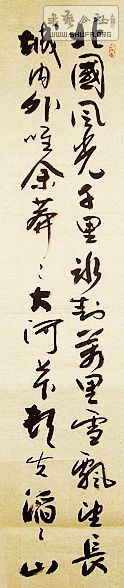 北國風光千里冰封萬里雪飄望長
城内外唯余莽〻大河下頓失滔〻山
WWW.SHUFA.ORG